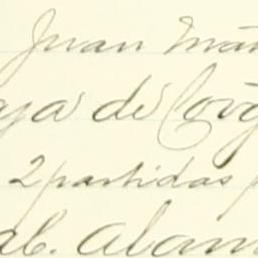 Juan Ma
aja de Coñ
2 partidas p
al. Alam